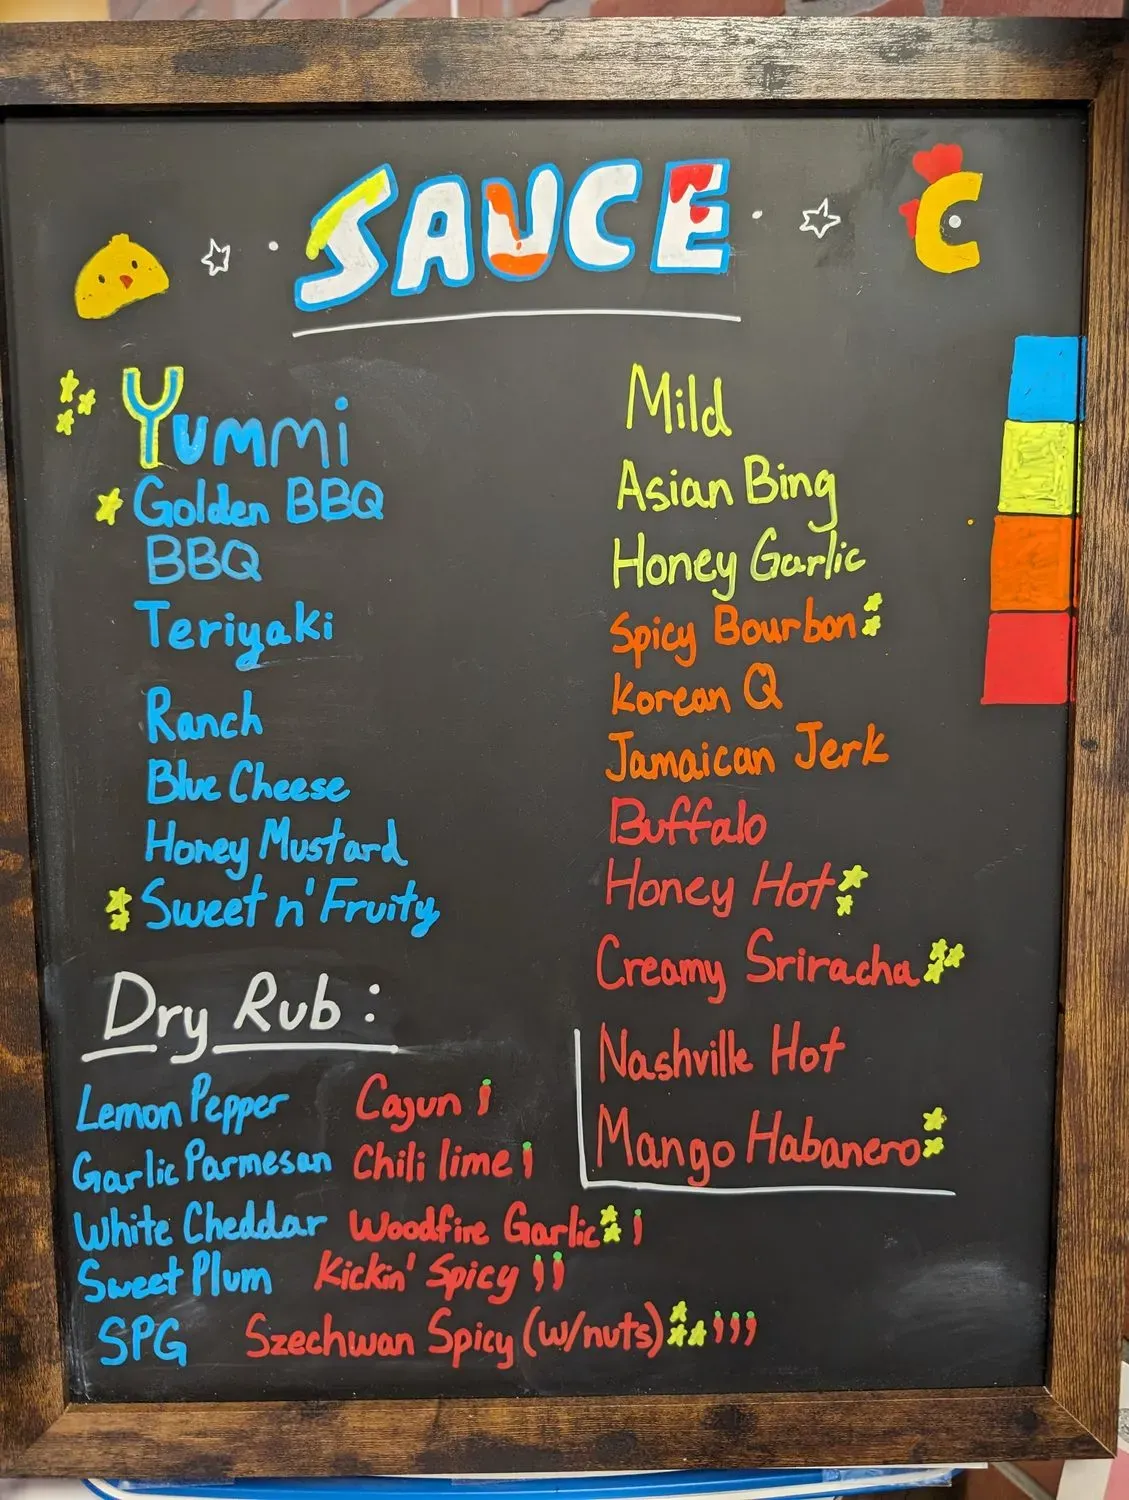 SAUCE
Yummi
Golden BBQ
BBQ
Teriyaki
Ranch
Blue Cheese
Honey Mustard
Sweet n' Fruity
Mild
Asian Bing
Honey Garlic
Spicy Bourbon
Korean Q
Jamaican Jerk
Buffalo
Honey Hot
Creamy Sriracha
Nashville Hot
Mango Habanero
Dry Rub :
Lemon Pepper
Garlic Parmesan
White Cheddar
Sweet Plum
SPG
Cajun
Chili lime
Woodfire Garlic
Kickin' Spicy
Szechwan Spicy (w/nuts)